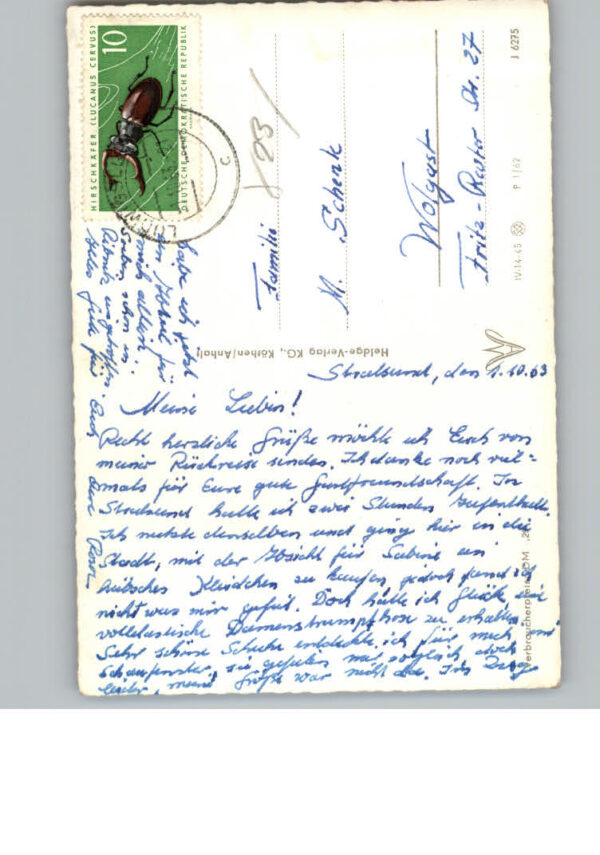 HIRSCHKÄFER (LUCANUS CERVUS)
10
DEUTSCHE DEMOKRATISCHE REPUBLIK
Familie
M. Schenk
Wolgast
Fritz-Reuter Str. 27
J 6275
IV-14-45 P 1/62
Heldge-Verlag KG., Köthen/Anhalt
Verbraucherpreis DM
Stralsund, den 1.10.63
Meine Lieben!
Recht herzliche Grüße möchte ich Euch von
meiner Rückreise senden. Ich danke noch viel-
mals für Eure gute Gastfreundschaft. In
Stralsund hatte ich zwei Stunden Aufenthalt.
Ich nutzte denselben und ging hier in die
Stadt, mit der Absicht für Sabine ein
hübsches Kleidchen zu kaufen, jedoch fand ich
nicht was mir gefiel. Doch hatte ich Glück eine
vollelastische Damenstrumpfhose zu erhalten.
Sehr schöne Schuhe entdeckte ich für mich im
Schaufenster, sie gefielen mir sogleich, doch
leider, meine Größe war nicht da. Im Zug
habe ich jetzt
ein Abteil für
mich allein.
schon in
Ribnitz eingetroffen
Alles Gute für Euch
Eure